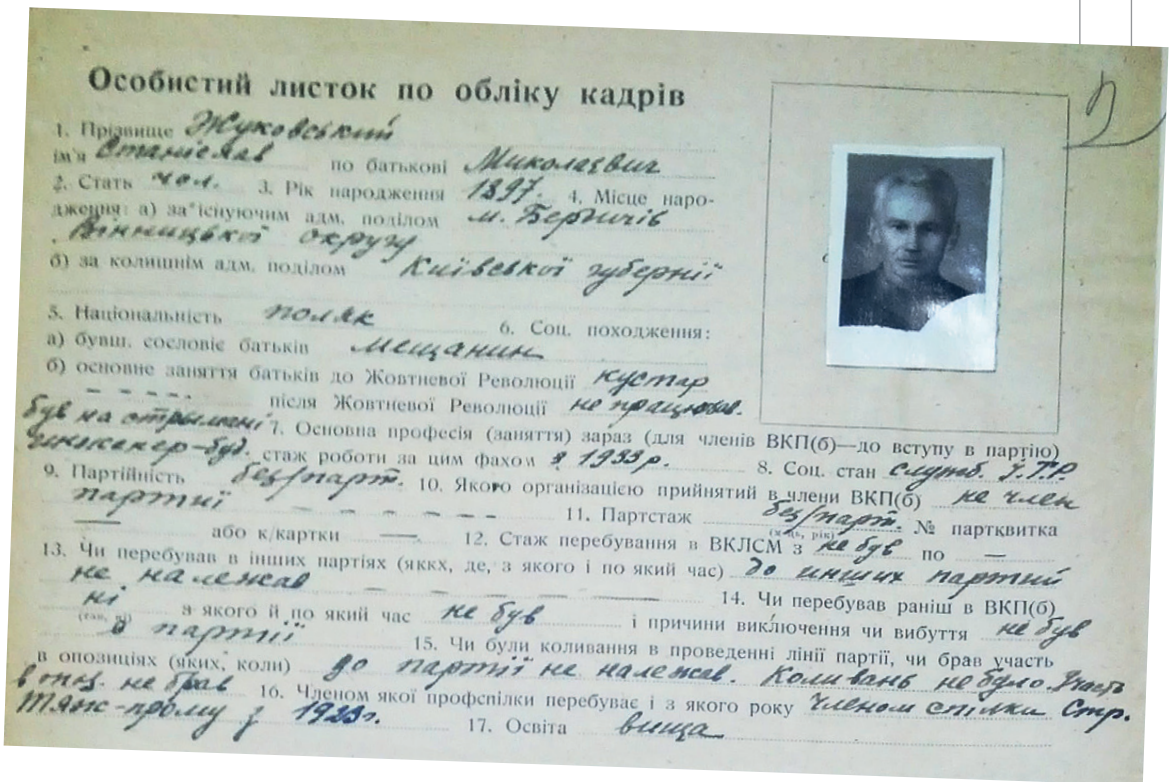 Особистий листок по обліку кадрів
1. Прізвище Жуковський
ім'я Станіслав по батькові Миколаєвич
2. Стать чол. 3. Рік народження 1897 4. Місце наро-
дження: а) за існуючим адм. поділом м. Бердичів
Вінницької округу
б) за колишнім адм. поділом Київської губернії
5. Національність поляк 6. Соц. походження:
а) бувш. сословіє батьків мещанин
б) основне заняття батьків до Жовтневої Революції кустар
після Жовтневої Революції не працював.
був на отрымані 7. Основна професія (заняття) зараз (для членів ВКП(б)—до вступу в партію)
инженер-буд. стаж роботи за цим фахом з 1933 р. 8. Соц. стан служб. І.Т.Р.
9. Партійність без/парт. 10. Якого організацією прийнятий в члени ВКП(б) не член
партиї 11. Партстаж без/парт. № партквитка
— або к/картки — 12. Стаж перебування в ВКЛСМ з не був по —
13. Чи перебував в інших партіях (яккх, де, з якого і по який час) до инших партий
не належав 14. Чи перебував раніш в ВКП(б)
ні з якого й по який час не був і причини виключення чи вибуття не був
в партії 15. Чи були коливання в проведенні лінії партії, чи брав участь
в опозиціях (яких, коли) до партії не належав. Коливань не було. Участь
в опоз. не брав 16. Членом якої профспілки перебуває і з якого року членом спілки Стр.
Тяж-прому з 1933г. 17. Освіта вища